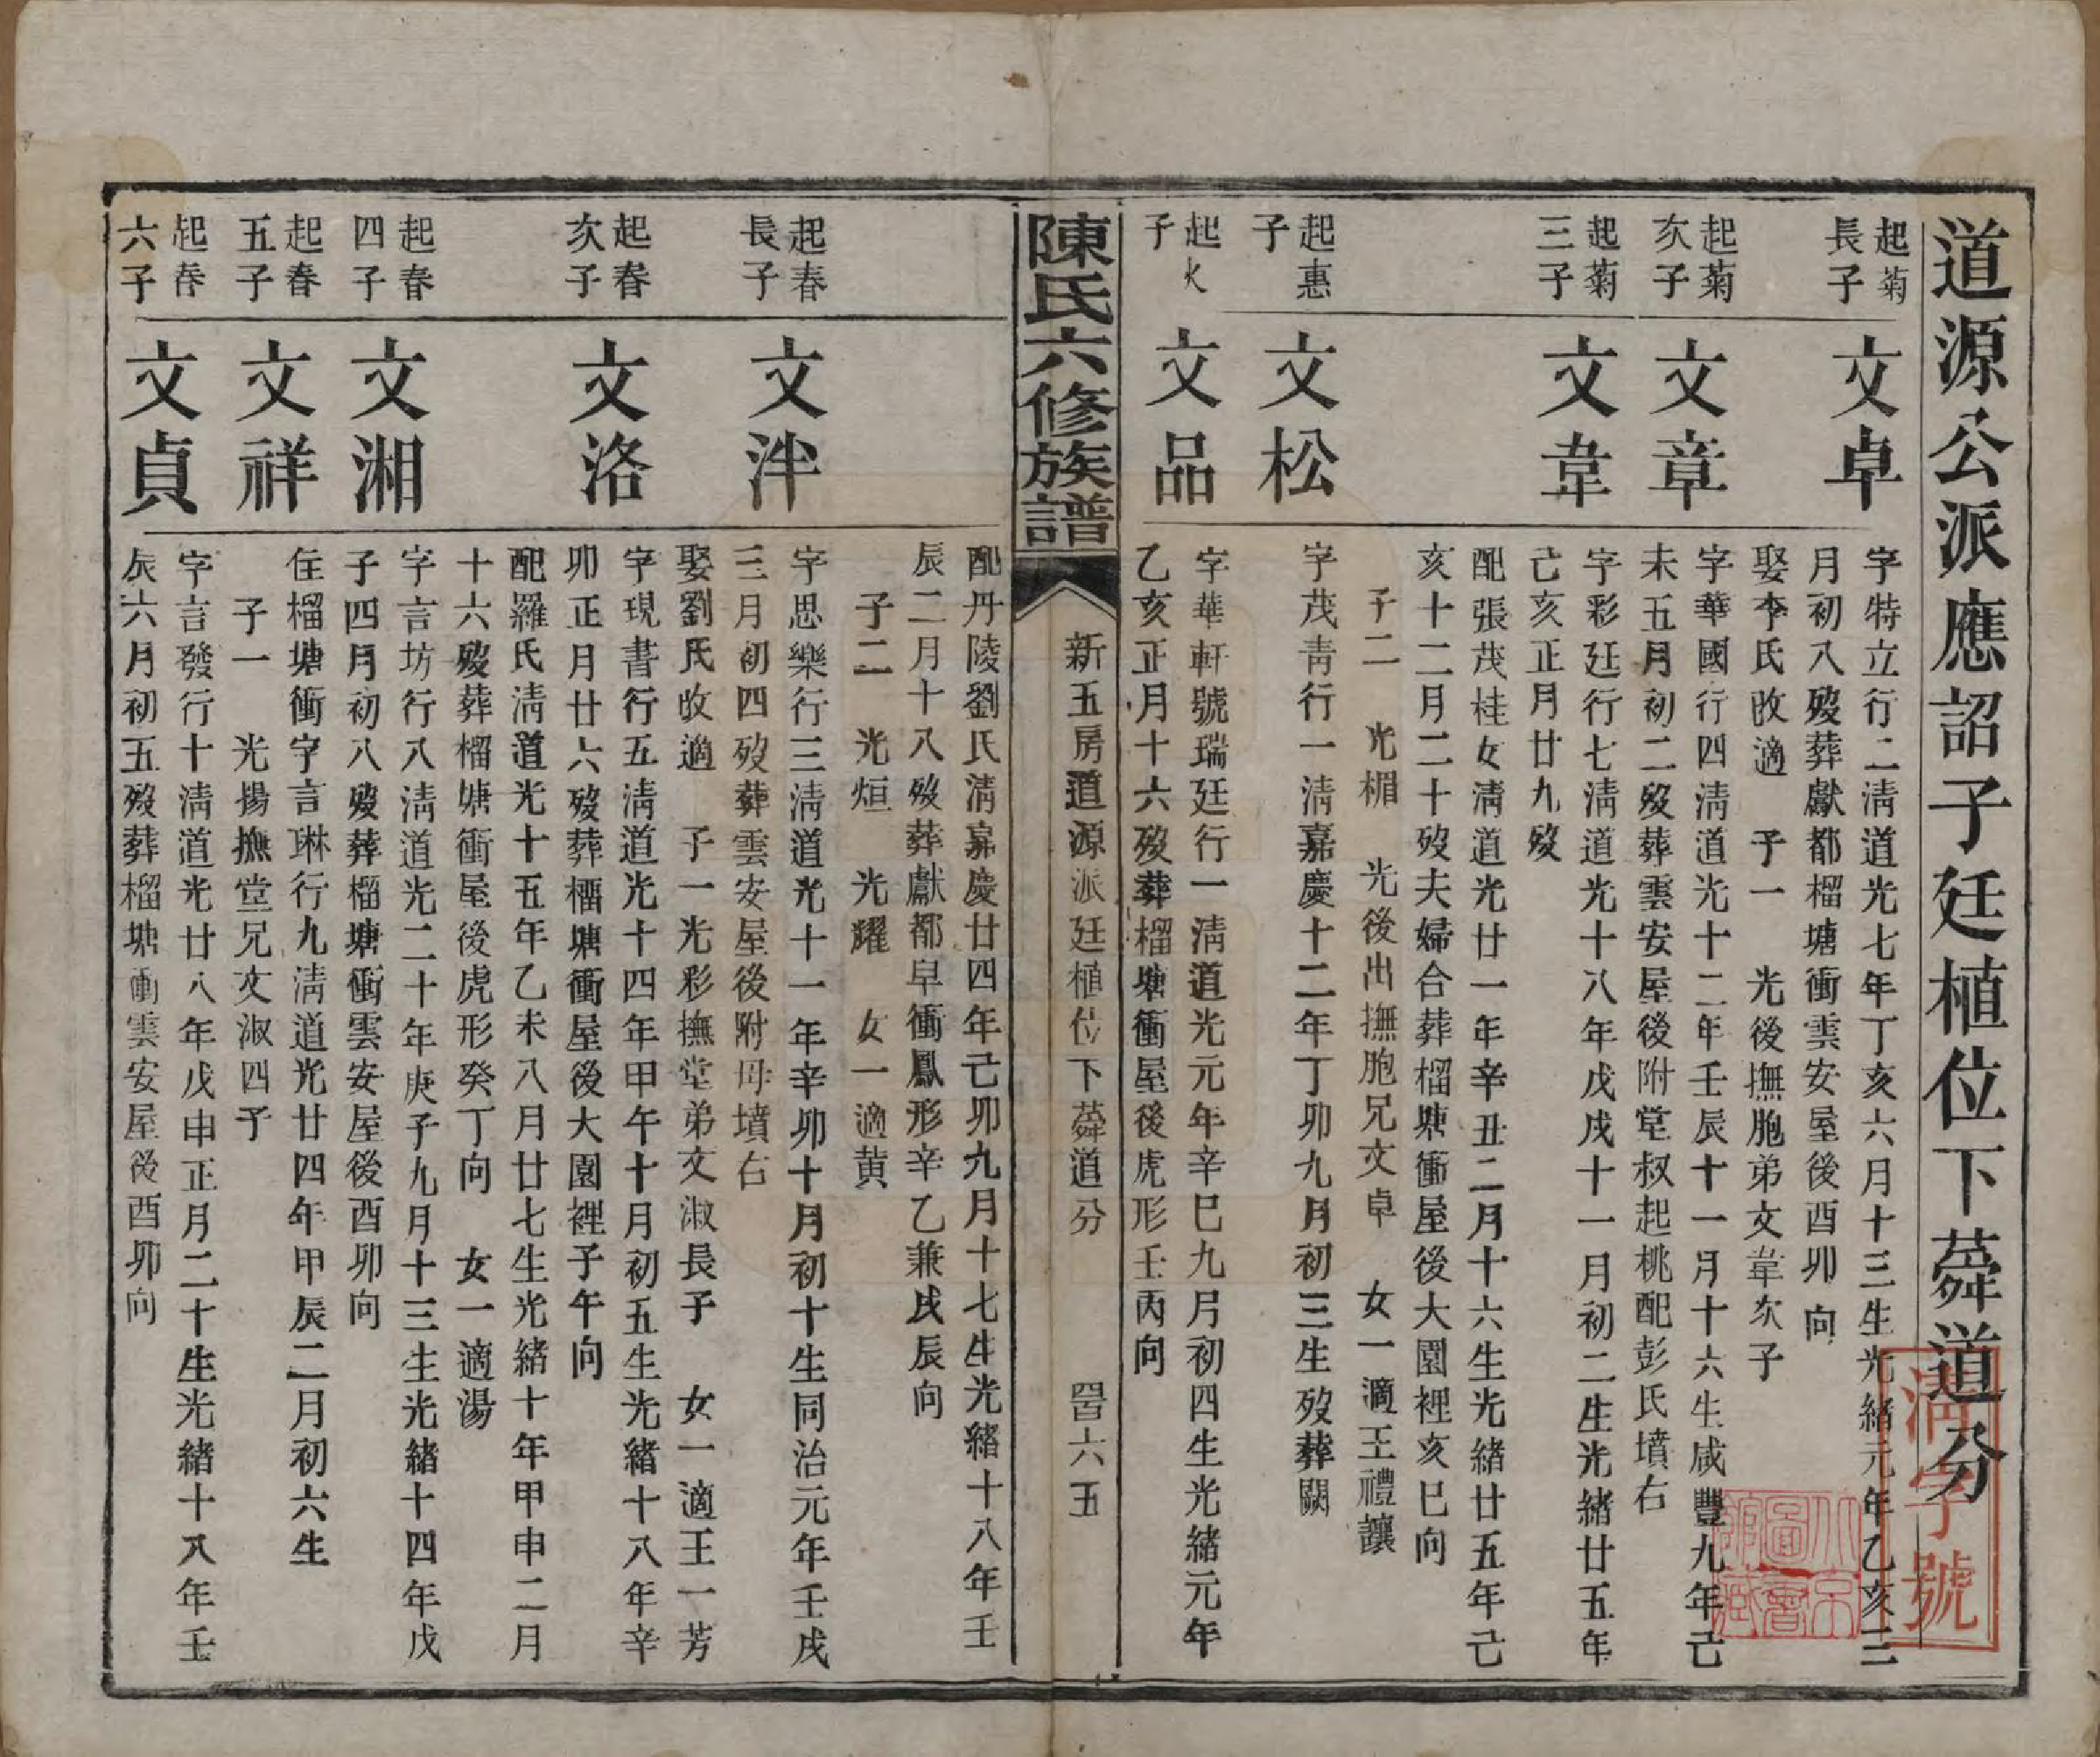 道源公派應詔子廷植位下蕣道分
起菊
長子
文卓
字特立行二清道光七年丁亥六月十三生光緒元年乙亥三
月初八歿葬獻都榴塘衝雲安屋後酉卯向
娶李氏改適 子一 光後撫胞弟文韋次子
起菊
次子
文章
字華國行四清道光十二年壬辰十一月十六生咸豐九年己
未五月初二歿葬雲安屋後附堂叔起桃配彭氏墳右
起菊
三子
文韋
字彩廷行七清道光十八年戊戌十一月初二生光緒廿五年
己亥正月廿九歿
配張茂桂女清道光廿一年辛丑二月十六生光緒廿五年己
亥十二月二十歿夫婦合葬榴塘衝屋後大園裡亥巳向
子二 光楣 光後出撫胞兄文卓 女一適王禮讓
起惠
子
文松
字茂青行一清嘉慶十二年丁卯九月初三生歿葬闕
起火
子
文品
字華軒號瑞廷行一清道光元年辛巳九月初四生光緒元年
乙亥正月十六歿葬榴塘衝屋後虎形壬丙向
陳氏六修族譜
新五房道源派廷植位下蕣道分
六五
配丹陵劉氏清嘉慶廿四年己卯九月十七生光緒十八年壬
辰二月十八歿葬獻都皁衝鳳形辛乙兼戌辰向
子二 光烜 光耀 女一適黄
起春
長子
文泮
字思樂行三清道光十一年辛卯十月初十生同治元年壬戌
三月初四歿葬雲安屋後附母墳右
娶劉氏改適 子一光彩撫堂弟文淑長子 女一適王一芳
起春
次子
文洛
字現書行五清道光十四年甲午十月初五生光緒十八年辛
卯正月廿六歿葬榴塘衝屋後大園裡子午向
配羅氏清道光十五年乙未八月廿七生光緒十年甲申二月
十六歿葬榴塘衝屋後虎形癸丁向 女一適湯
起春
四子
文湘
字言坊行八清道光二十年庚子九月十三生光緒十四年戊
子四月初八歿葬榴塘衝雲安屋後酉卯向
起春
五子
文祥
住榴塘衝字言琳行九清道光廿四年甲辰二月初六生
子一 光揚撫堂兄文淑四子
起春
六子
文貞
字言發行十清道光廿八年戊申正月二十生光緒十八年壬
辰六月初五歿葬榴塘衝雲安屋後酉卯向